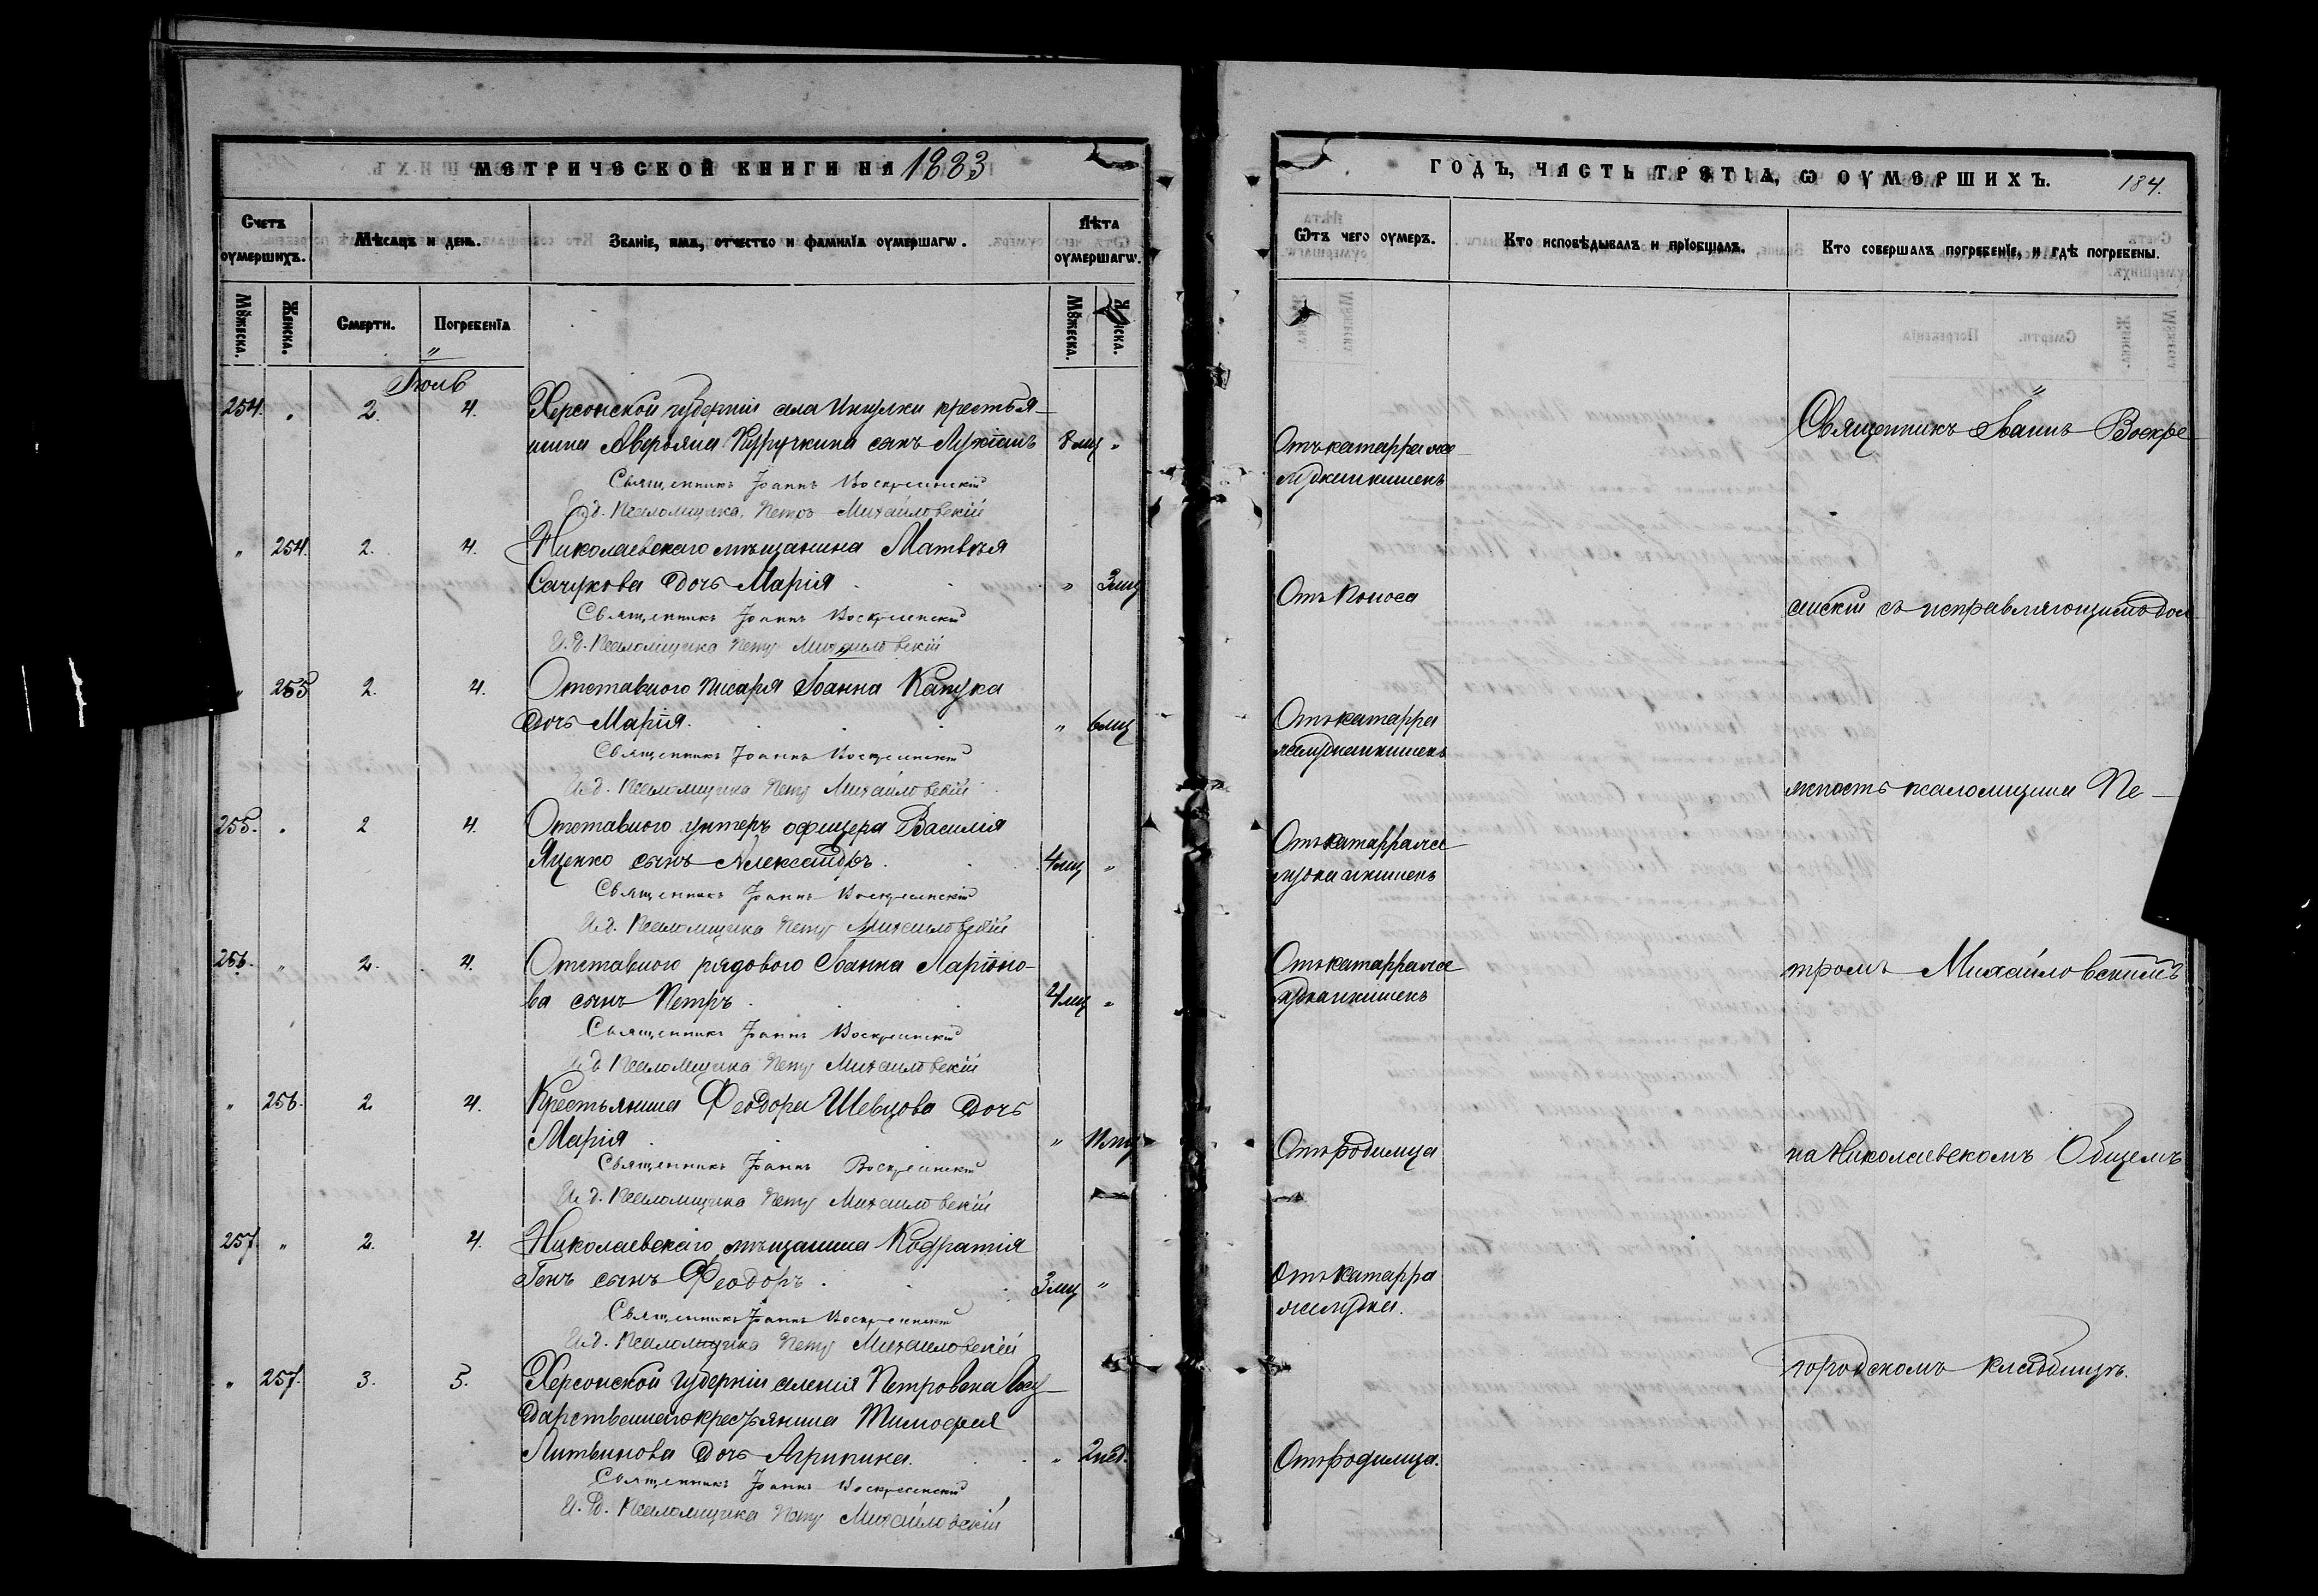 МЕТРИЧЕСКОЙ КНИГИ НА 1883
Счетъ оумершихъ.
Мѣсяцъ и день.
Званіе, имя, отчество и фамилїя оумершагѡ.
Лѣта оумершагѡ.
Мꙋжеска.
Женска.
Смерти.
Погребенїя
Мꙋжеска.
Женска.
Іюль
254. " 2. 4. Херсонской губерніи села Ингулки крестья-
нина Аверьяна сынъ Лукіанъ 8 мц "
Священникъ Іоаннъ Воскресенскій
И.д. Псаломщика Петръ Михайловскій
" 254. 2. 4. Николаевскаго мѣщанина Матвѣя
Сачукова дочь Марія " 3 мц
Священникъ Іоаннъ Воскресенскій
И.д. Псаломщика Петръ Михайловскій
" 255 2. 4. Отставного писаря Іоанна Капука
дочь Марія. " 6 мц
Священникъ Іоаннъ Воскресенскій
И.д. Псаломщика Петръ Михайловскій
255. " 2 4. Отставного унтеръ офицера Василія
Яценко сынъ Александръ. 4 мц "
Священникъ Іоаннъ Воскресенскій
И.д. Псаломщика Петръ Михайловскій
256. " 2. 4. Отставного рядового Іоанна Ларіоно-
ва сынъ Петръ 4 мц "
Священникъ Іоаннъ Воскресенскій
И.д. Псаломщика Петръ Михайловскій
" 256. 2 4. Крестьянина Феодора Шевцова дочь
Марія "
Священникъ Іоаннъ Воскресенскій
И.д. Псаломщика Петръ Михайловскій
257. " 2. 4. Николаевскаго мѣщанина Кодратія
Генъ сынъ Феодоръ. 3 мц "
Священникъ Іоаннъ Воскресенскій
И.д. Псаломщика Петръ Михайловскій
" 257. 3. 5. Херсонской губерніи селенія Петровска Госу-
дарственнаго крестьянина Тимофея
Литвинова дочь Агрипина. " 2 нед.
Священникъ Іоаннъ Воскресенскій
И.д. Псаломщика Петръ Михайловскій
ГОДЪ, ЧАСТЬ ТРЕТІА, Ѡ ОУМЕРШИХЪ. 184.
Ѿтъ чего оумеръ.
Кто исповѣдывалъ и прїобщалъ.
Кто совершалъ погребенїе, и гдѣ погребены.
Отъ катарра же-
лудка и кишекъ
Отъ поноса
Отъ катарра
желудка и кишекъ
Отъ катарра же-
лудка и кишекъ
Отъ катарра же-
лудка и кишекъ
Отъ родимца
Отъ катарра
желудка.
Отъ родимца.
Священникъ Іоаннъ Воскре-
сенскій съ исправляющимъ дол-
жность псаломщика Пе-
тромъ Михайловскимъ
на Николаевскомъ Общемъ
городскомъ кладбищѣ.